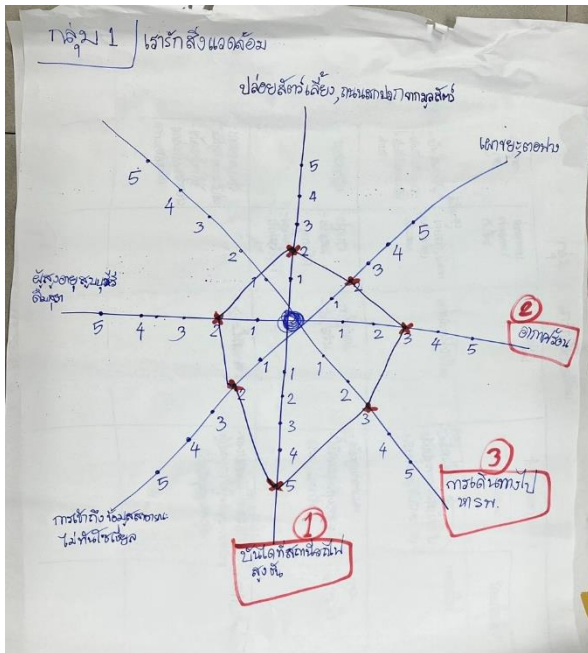 กลุ่ม 1
เรารักสิ่งแวดล้อม
ปล่อยสัตว์เลี้ยง,ถนนสกปรกจากมูลสัตว์
เผาขยะ,ตอฟาง
5
4
3
2
1
5
4
3
2
1
5
4
3
2
1
ผู้สูงอายุสูบบุหรี่
ดื่มสุรา
5 4 3 2 1
1 2 3 4 5
②
อากาศร้อน
1
2
3
4
5
1
2
3
4
5
1
2
3
4
5
③
การเดินทางไป
หารพ.
การเข้าถึงข้อมูล
ไม่ทันโซเชียล
①
บันไดที่สถานีรถไฟ
สูงชัน